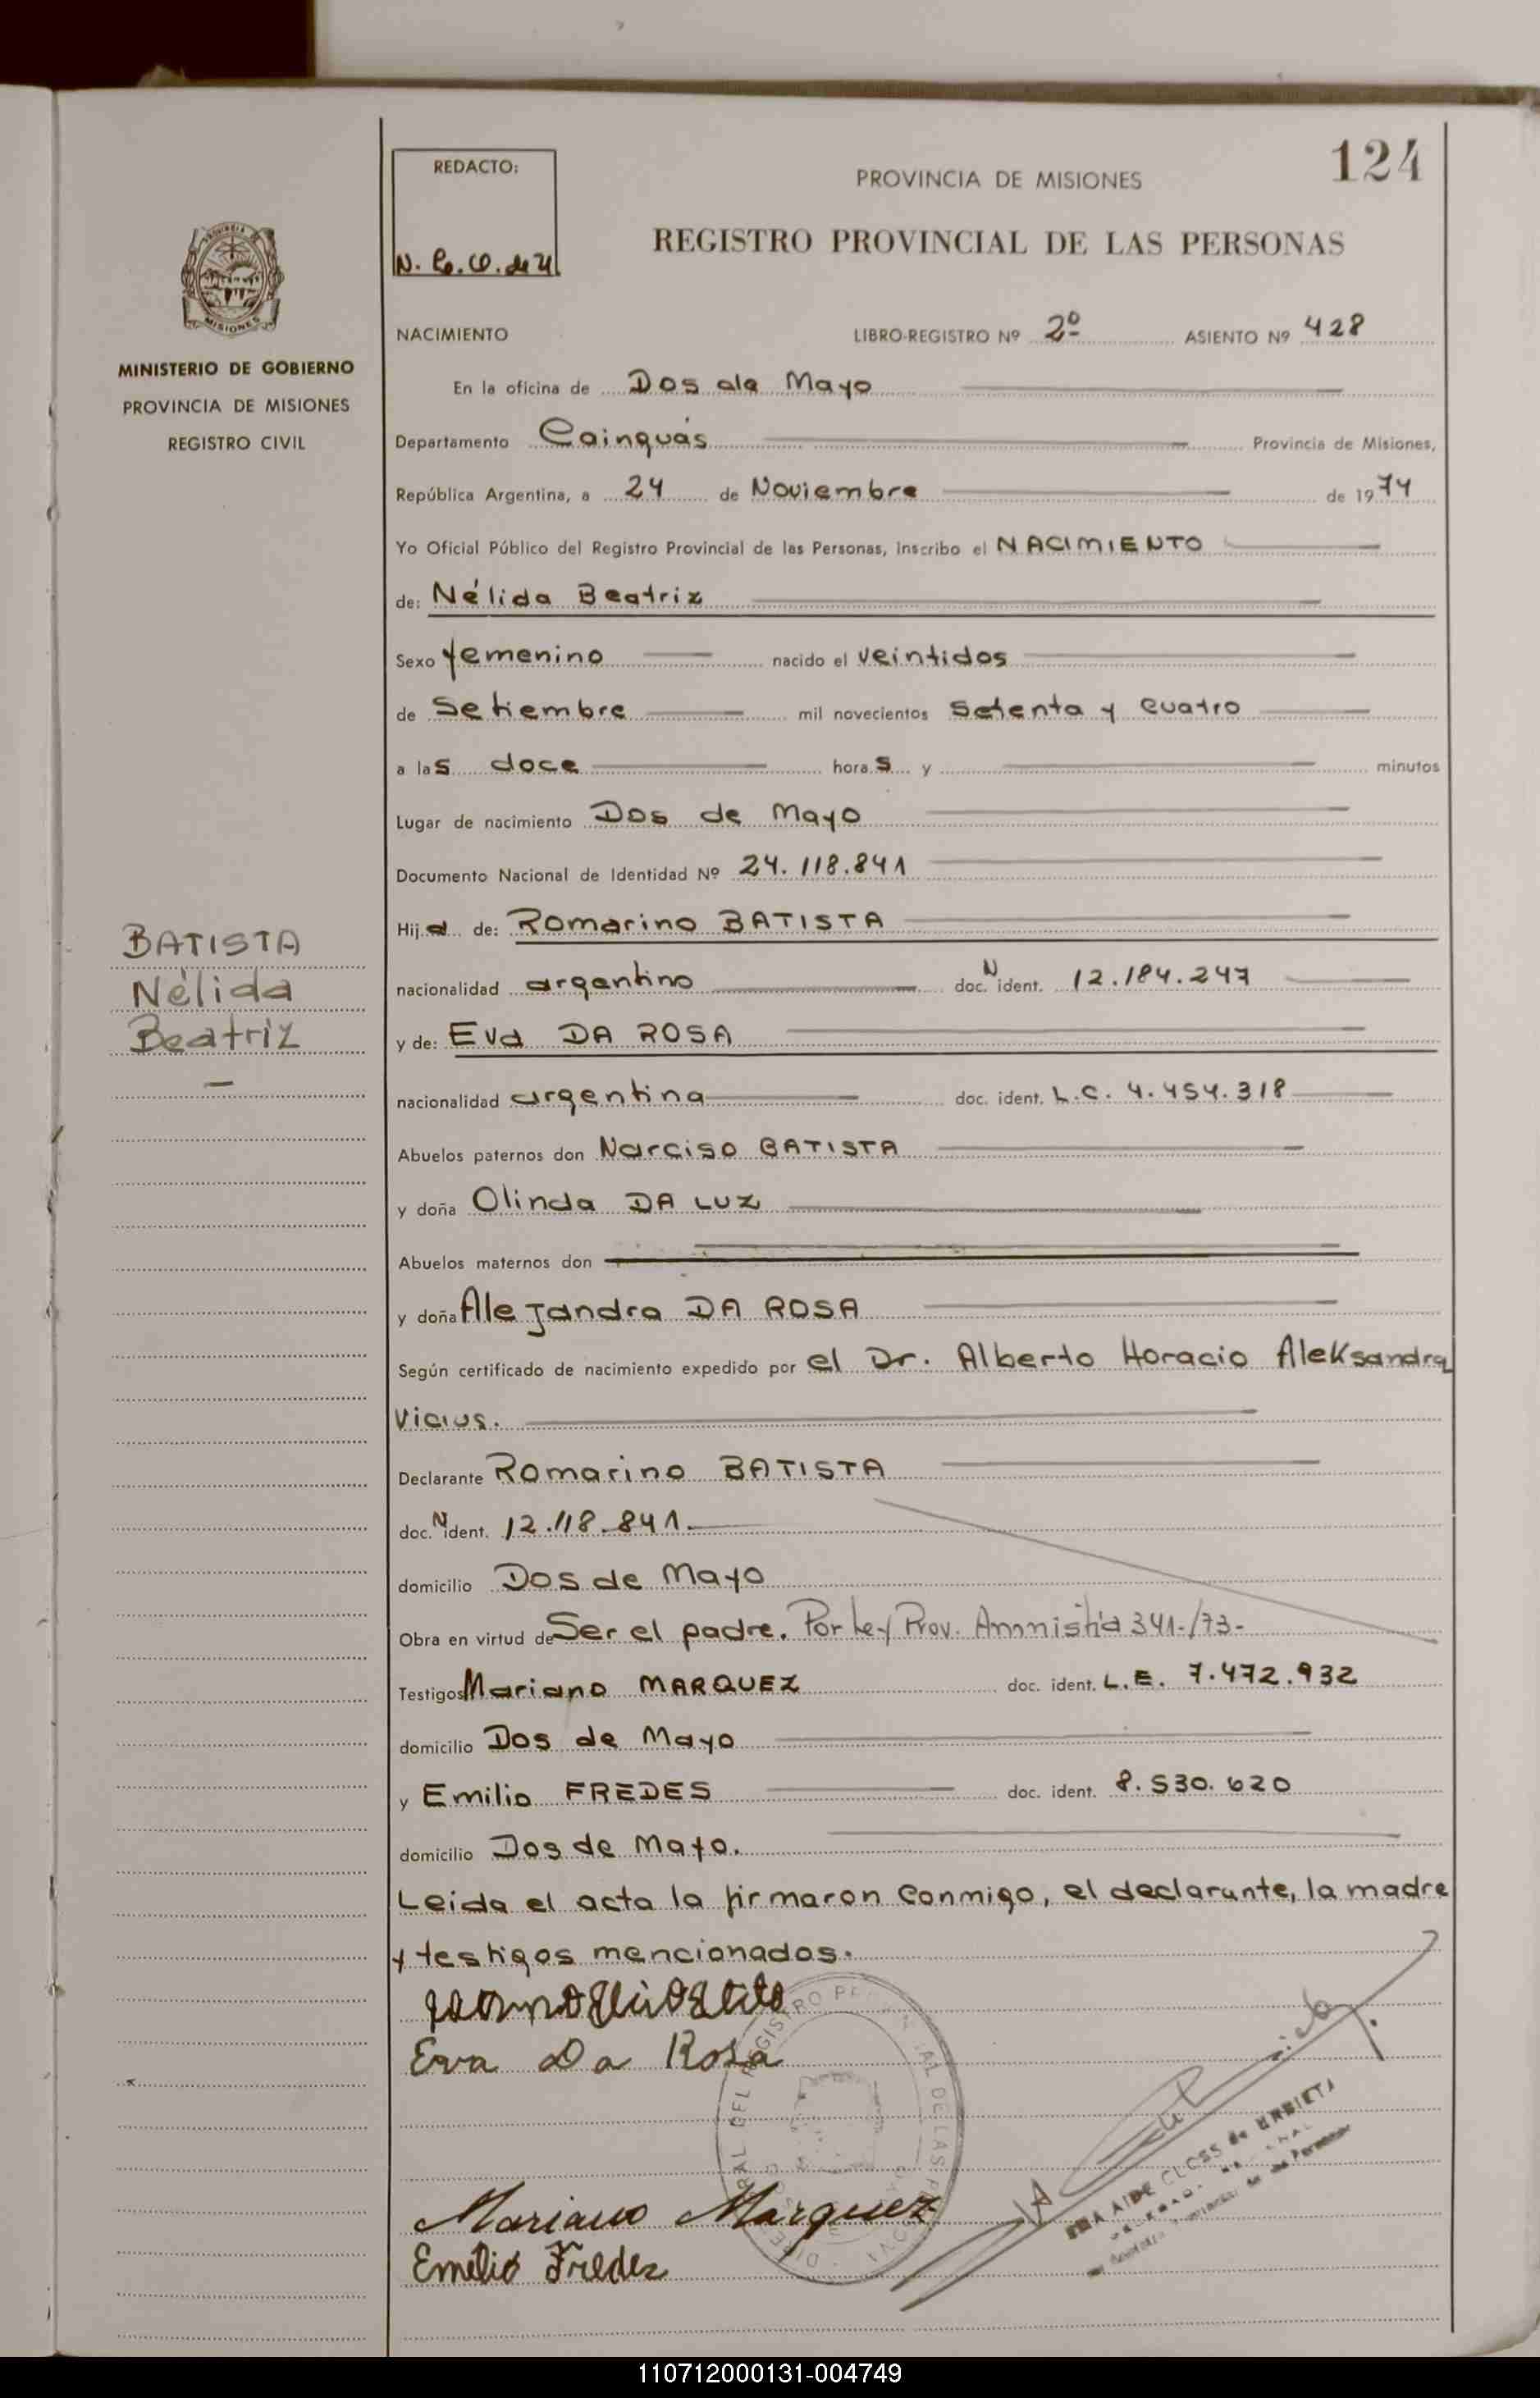 124
REDACTO:
PROVINCIA DE MISIONES
REGISTRO PROVINCIAL DE LAS PERSONAS
MISIONES
MINISTERIO DE GOBIERNO
PROVINCIA DE MISIONES
REGISTRO CIVIL
NACIMIENTO LIBRO-REGISTRO Nº 2º ASIENTO Nº 428
En la oficina de Dos de Mayo
Departamento Cainguás Provincia de Misiones,
República Argentina, a 24 de Noviembre de 1974
Yo Oficial Público del Registro Provincial de las Personas, inscribo el NACIMIENTO
de: Nélida Beatriz
Sexo femenino nacido el veintidos
de Setiembre mil novecientos Setenta y cuatro
a las doce horas y minutos
Lugar de nacimiento Dos de Mayo
Documento Nacional de Identidad Nº 24.118.841
BATISTA
Nélida
Beatriz
Hija de: Romarino BATISTA
nacionalidad argentino doc. N ident. 12.184.247
y de: Eva DA ROSA
nacionalidad argentina doc. ident. L.C. 4.454.318
Abuelos paternos don Narciso BATISTA
y doña Olinda DA LUZ
Abuelos maternos don
y doña Alejandra DA ROSA
Según certificado de nacimiento expedido por el Dr. Alberto Horacio Aleksandra
Vicius.
Declarante Romarino BATISTA
doc. N ident. 12.118.841.
domicilio Dos de Mayo
Obra en virtud de Ser el padre. Por Ley Prov. Amnistía 341-/73-
Testigos Mariano MARQUEZ doc. ident. L.E. 7.472.932
domicilio Dos de Mayo
y Emilio FREDES doc. ident. 8.530.620
domicilio Dos de Mayo.
Leida el acta la firmaron conmigo, el declarante, la madre
y testigos mencionados.
Eva Da Rosa
Mariano Marquez
Emilio Fredes
110712000131-004749